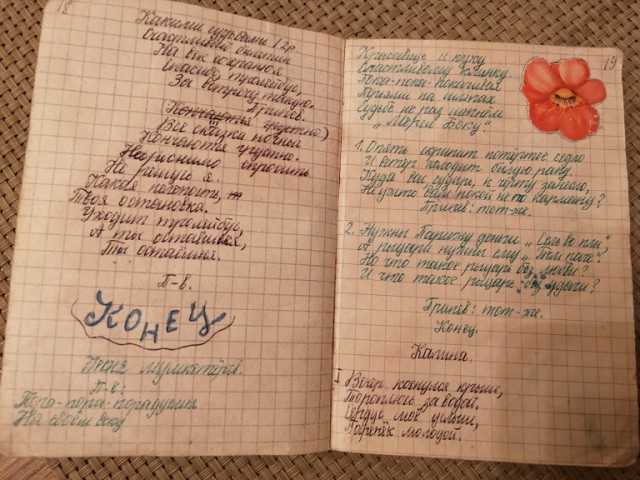 18
Какими судьбами 12р.
Счастливый билетик
На век сохраню я.
Спасибо троллейбус,
За встречу такую.
Припев.
(Кончаются грустно)
(Все сказки ночные
Кончаются грустно.
Неудобно спросить
Не решусь я.
Какая
Твоя остановка.
Уходит троллейбус,
А ты оставайся,
Ты останься.
П-в.
КОНЕЦ
Песня мушкетёров.
П-в:
Пора-пора-порадуемся
На своём веку
19
Красавице и кубку
Счастливому клинку.
Пока-пока-покачивая
Перьями на шляпах
Судьбе не раз шепнём
„Мерси Боку".
1. Опять скрипит потёртое седло
И ветер холодит былую рану.
Куда вас сударь, к чёрту занесло,
Неужто вам покой не по карману?
Припев: тот-же.
2. Нужны Парижу деньги „Се ля ви",
А рыцари нужны ему „Тем паче".
Но что такое рыцарь без любви?
И что такое рыцарь без удачи?
Припев: тот-же.
Конец.
Калина.
I Вечер коснулся крыши,
Тороплюсь за водой.
Сердце моё услышь,
Паренёк молодой.